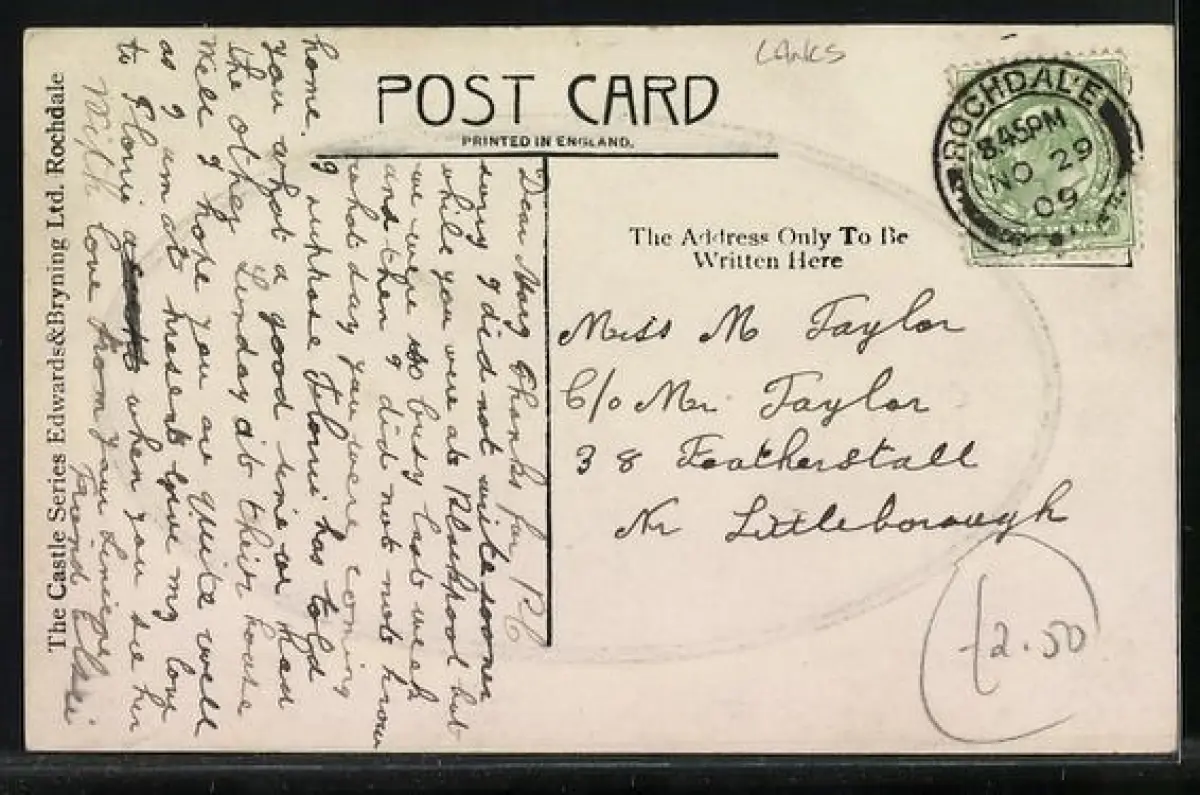 Lanks
POST CARD
PRINTED IN ENGLAND.
ROCHDALE
845PM
NO 29
09
The Address Only To Be
Written Here
Miss M Taylor
C/o Mr Taylor
38 Featherstall
Nr Littleborough
£2.50
Dear Mary Thanks for P.C
sorry I did not write sooner
while you were at Blackpool but
we were so busy last week
and then I did not not know
what day you were coming
home. I suppose Florri has told
you what a good time we had
the other Sunday at their house
Well I hope you are quite well
as I am at present give my love
to Florri when you see her
With love from your Sincere
Friend Elsie
The Castle Series Edwards&Bryning Ltd. Rochdale